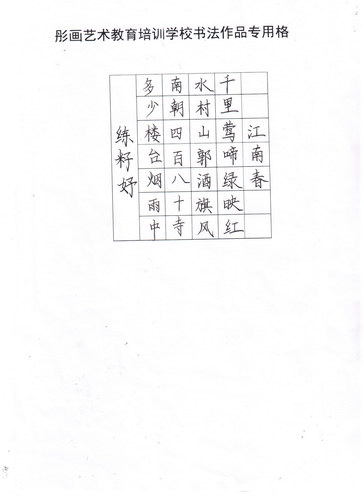 彤画艺术教育培训学校书法作品专用格
江南春
千里莺啼绿映红
水村山郭酒旗风
南朝四百八十寺
多少楼台烟雨中
练籽妤